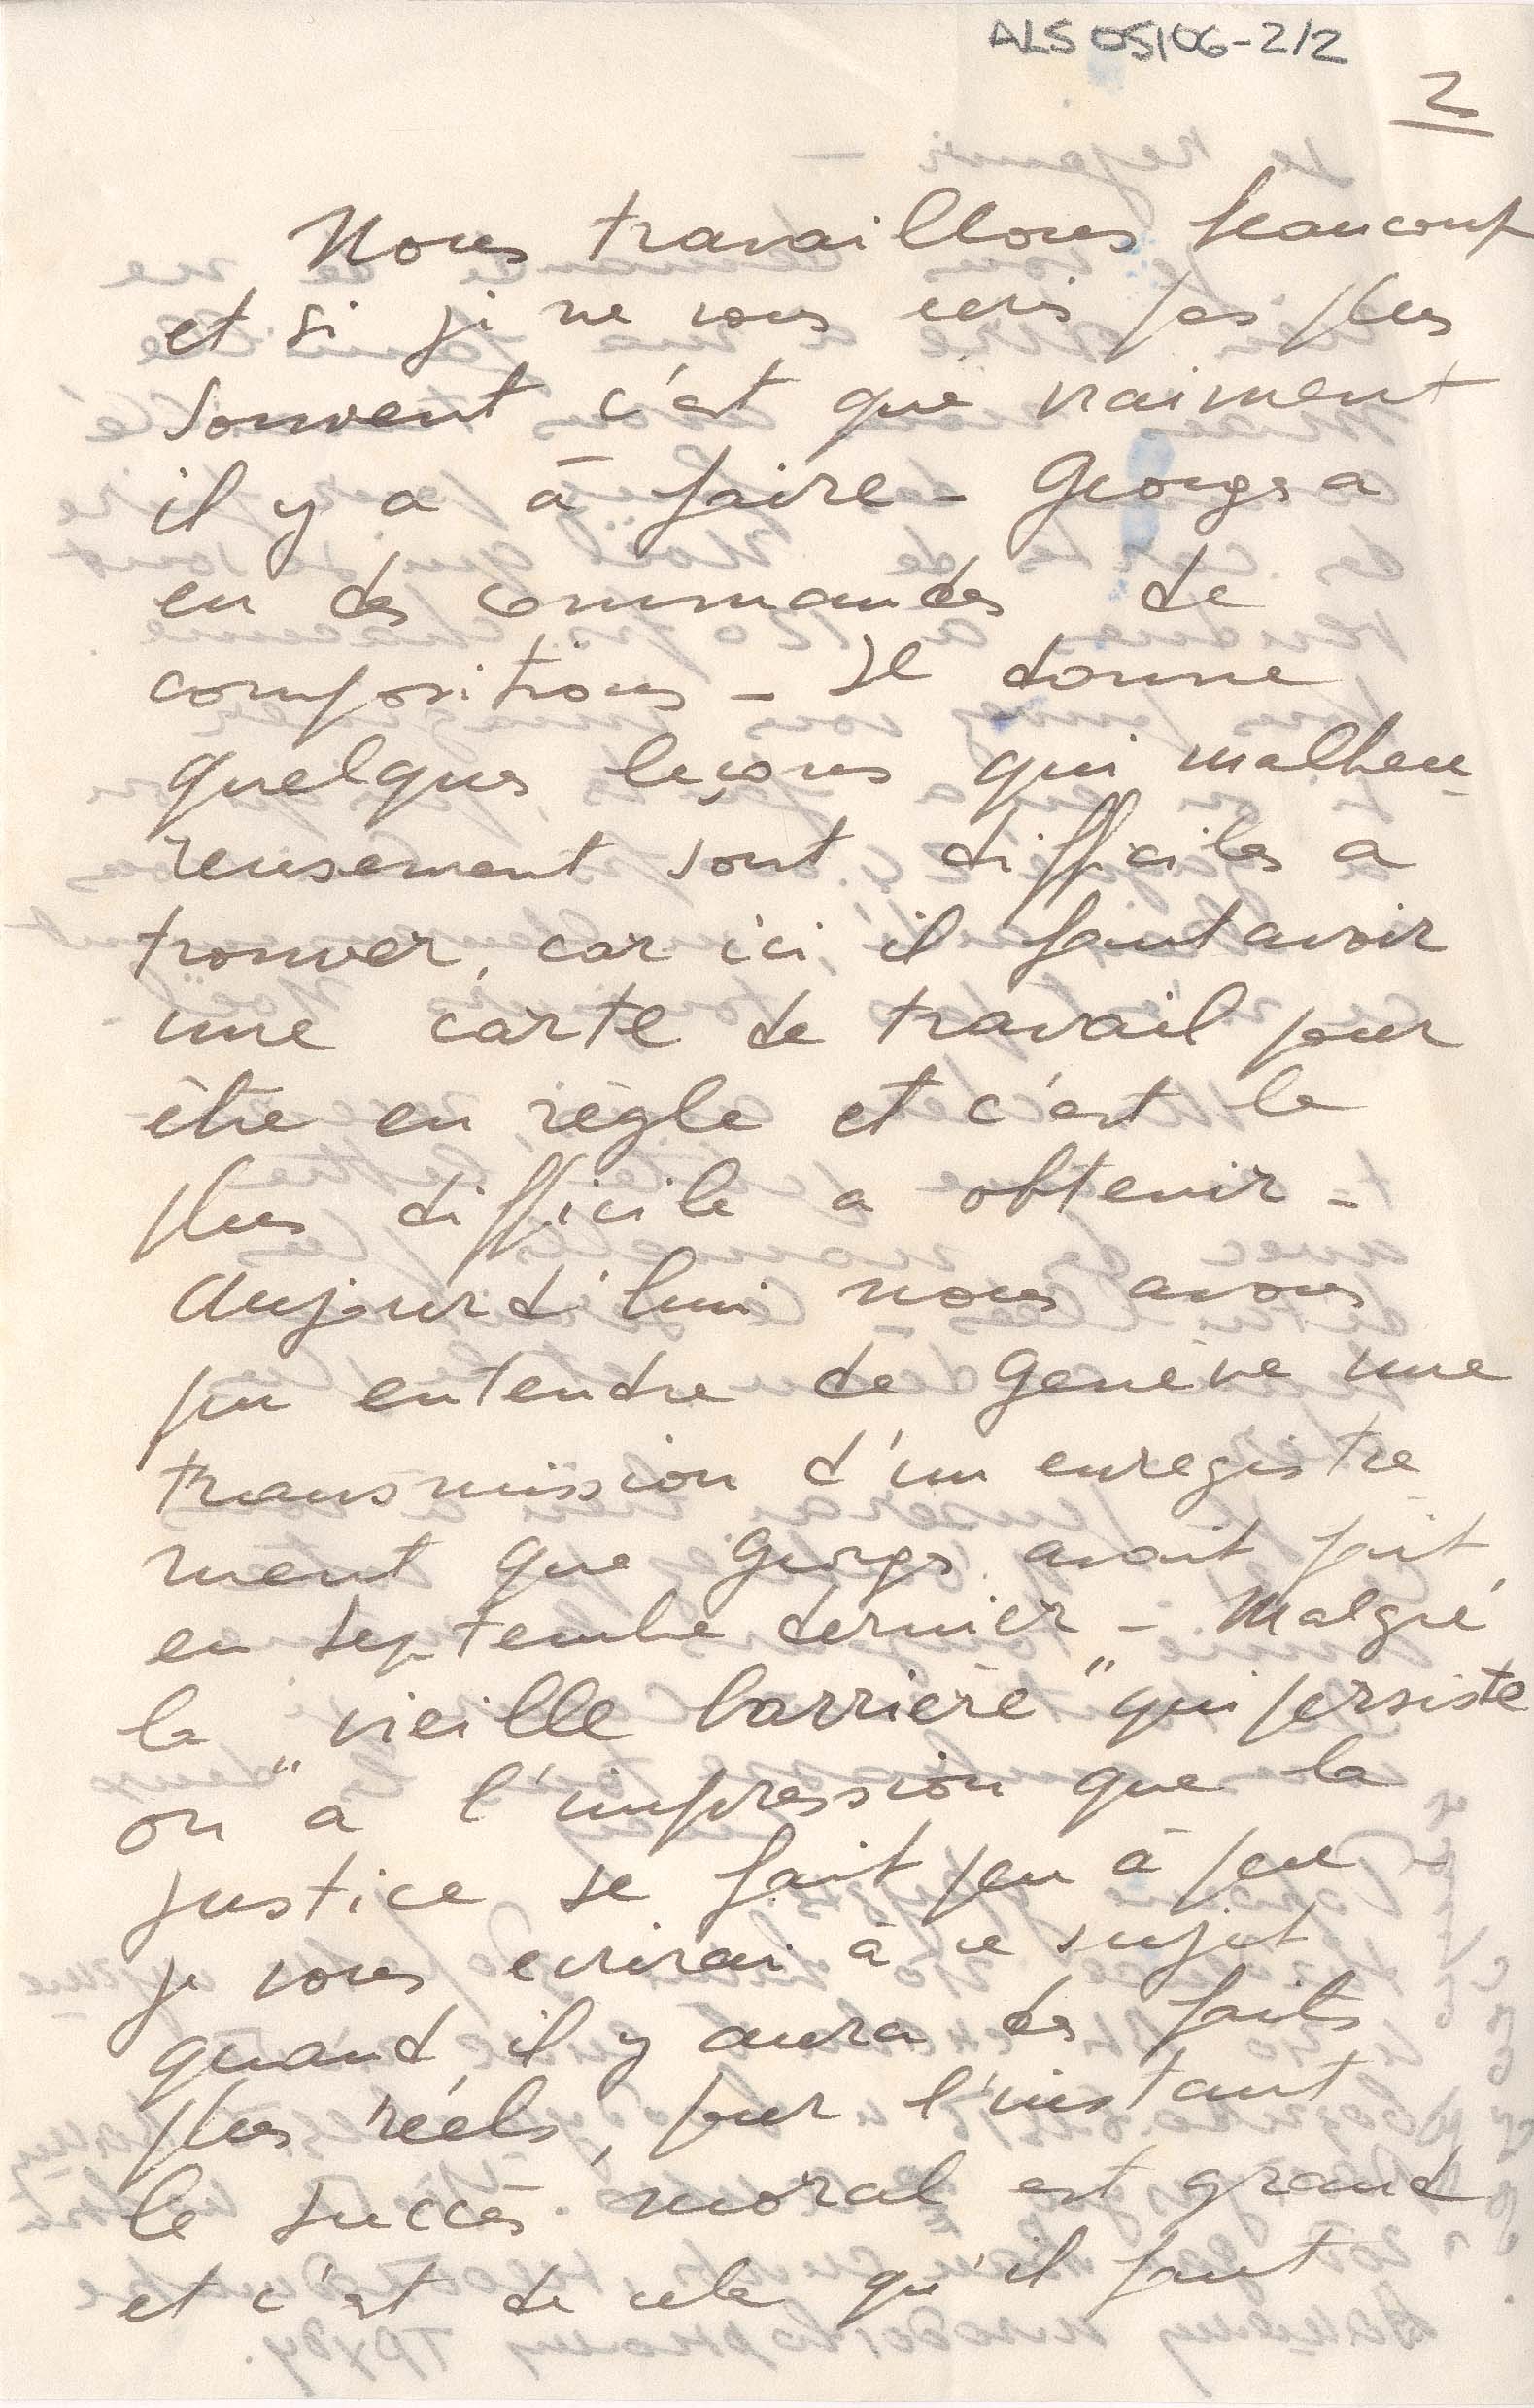 ALS 05/06-2/2
2
Nous travaillons beaucoup
et si je ne vous écris pas plus
souvent c'est que vraiment
il y a à faire - Georges a
eu des commandes de
compositions - Il donne
quelques leçons qui malheu-
reusement sont difficiles a
trouver, car ici, il faut avoir
une carte de travail pour
être en règle et c'est le
plus difficile a obtenir -
Aujourd'hui nous avons
pu entendre de Genève une
transmission d'un enregistre
ment que Georges avait fait
en septembre dernier - Malgré
la "vieille barrière" qui persiste
on a l'impression que la
justice se fait peu à peu -
je vous ecrirai à ce sujet
quand il y aura des faits
plus réels, pour l'instant
le succès moral est grand
et c'est de cela qu'il faut